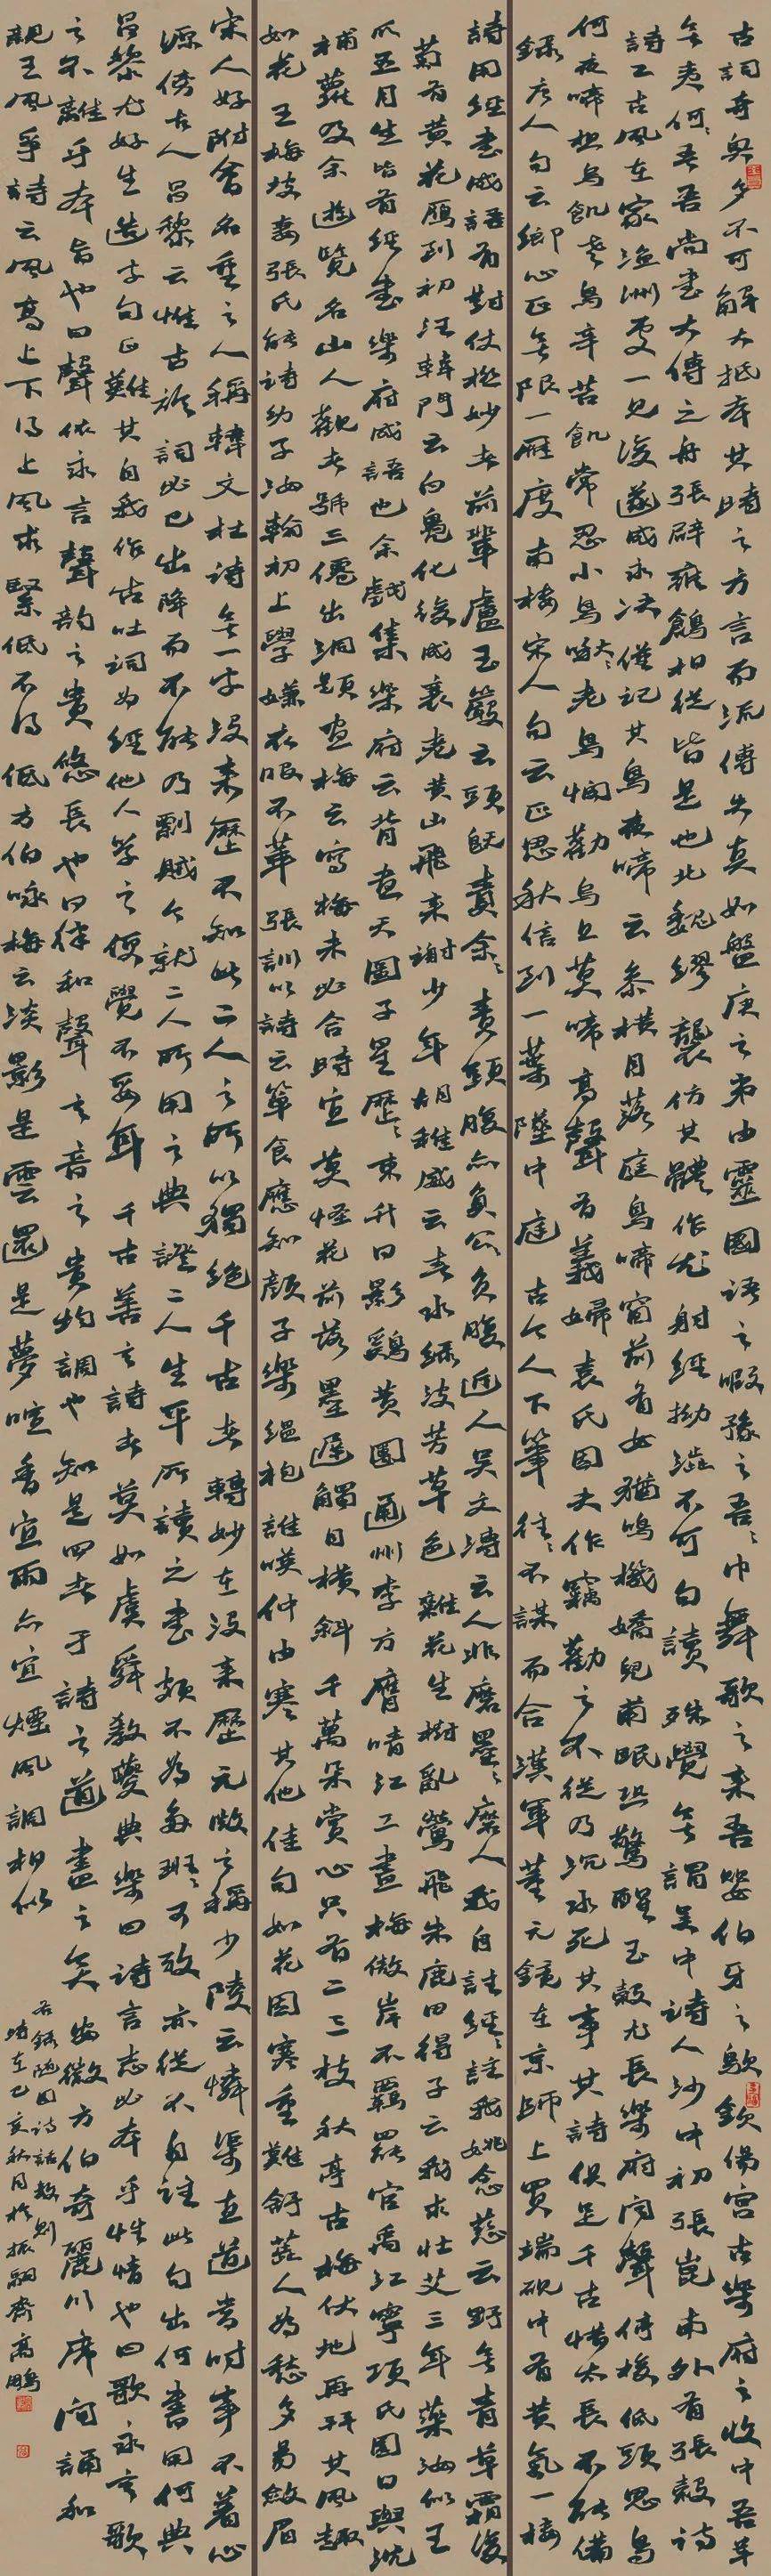 古詞奇奧多不可解大抵本其時之方言而流傳失真如盤庚之弔由靈國語之暇豫之吾吾巾舞歌之來吾嬰伯牙之歍欽傷宮古樂府之收中吾羊
無夷何何吾吾尚書大傳之舟張辟雍鶬鶬相從皆是也北魏繆襲仿其體作尤射經拗澁不可句讀殊覺無謂吳中詩人沙中初張崑南外有張穀詩
詩工古風在家漁洲處一見後遂成永决僅記其烏夜啼云參橫月落庭烏啼窗前有女猶鳴機嬌兒眠恐驚醒玉穀尤長樂府聲倚梭低頭思烏
何夜啼想烏飢老烏辛苦飢常忍小烏啾啾老烏憫勸烏且莫啼高聲有義婦袁氏因夫作竊勸之不從乃沉水死其事其詩俱足千古惜太長不能備
錄唐人句云鄉心正無限一雁度南樓宋人句云正思秋信到一葉墜中庭古今人下筆往往不謀而合漢軍董元鏡在京師上買端硯中有黃氣一樓
詩用經書成語有對仗極妙者前輩盧玉巖云頭既責余余責頭腹亦負公公負腹近人吳文溥云人非磨墨墨磨人我自註經經註我姚念慈云野無青草霜後
菊有黃花雁到初汪韓門云白鳧化後成衰老黃山飛來謝少年胡稚威云春水綠波芳草色雜花生樹亂鶯飛朱鹿田得子云我求壯艾三年藥汝似王
瓜五月生皆有經書樂府成語也余戲集樂府云背畫天圖子星歷歷東升日影鷄黃團團通州李方膺晴江工畫梅傲岸不羈罷官寓江寧項氏園日與沈
補蘿及余遊覽名山人觀者號三僊出洞題畫梅云寫梅未必合時宜莫怪花前落墨遲觸目橫斜千萬朵賞心只有二三枝秋亭古梅伏地再拜其風趣
如花王梅坡妻張氏能詩幼子汝翰初上學嫌衣服不華張訓以詩云簞食應知顏子樂縕袍誰嘆仲由寒其他佳句如花因寒重難舒蕊人為愁多易斂眉
宋人好附會名重之人稱韓文杜詩無一字沒來歷不知此二人之所以獨絕千古者轉妙在沒來歷元微之稱少陵云憐渠直道當時事不着心
源傍古人昌黎云惟古於詞必己出降而不能乃剽賊今就二人所用之典證二人生平所讀之書頗不為多班班可考亦從不自註此句出何書用何典
昌黎尤好生造字句正難其自我作古吐詞為經他人學之便覺不妥耳千古善言詩者莫如虞舜教夔典樂曰詩言志必本乎性情也曰歌永言歌
之不離乎本旨也曰聲依永言聲韵之貴悠長也曰律和聲言音之貴均調也知是四者于詩之道盡之矣安徽方伯奇麗川席間誦和
親王風箏詩云風高上下得上風求緊低不得低方伯咏梅云淡影是雲還是夢暗香宜雨亦宜煙風調相似
右錄隨園詩話數則
時在己亥秋月於振翮齋高鵬